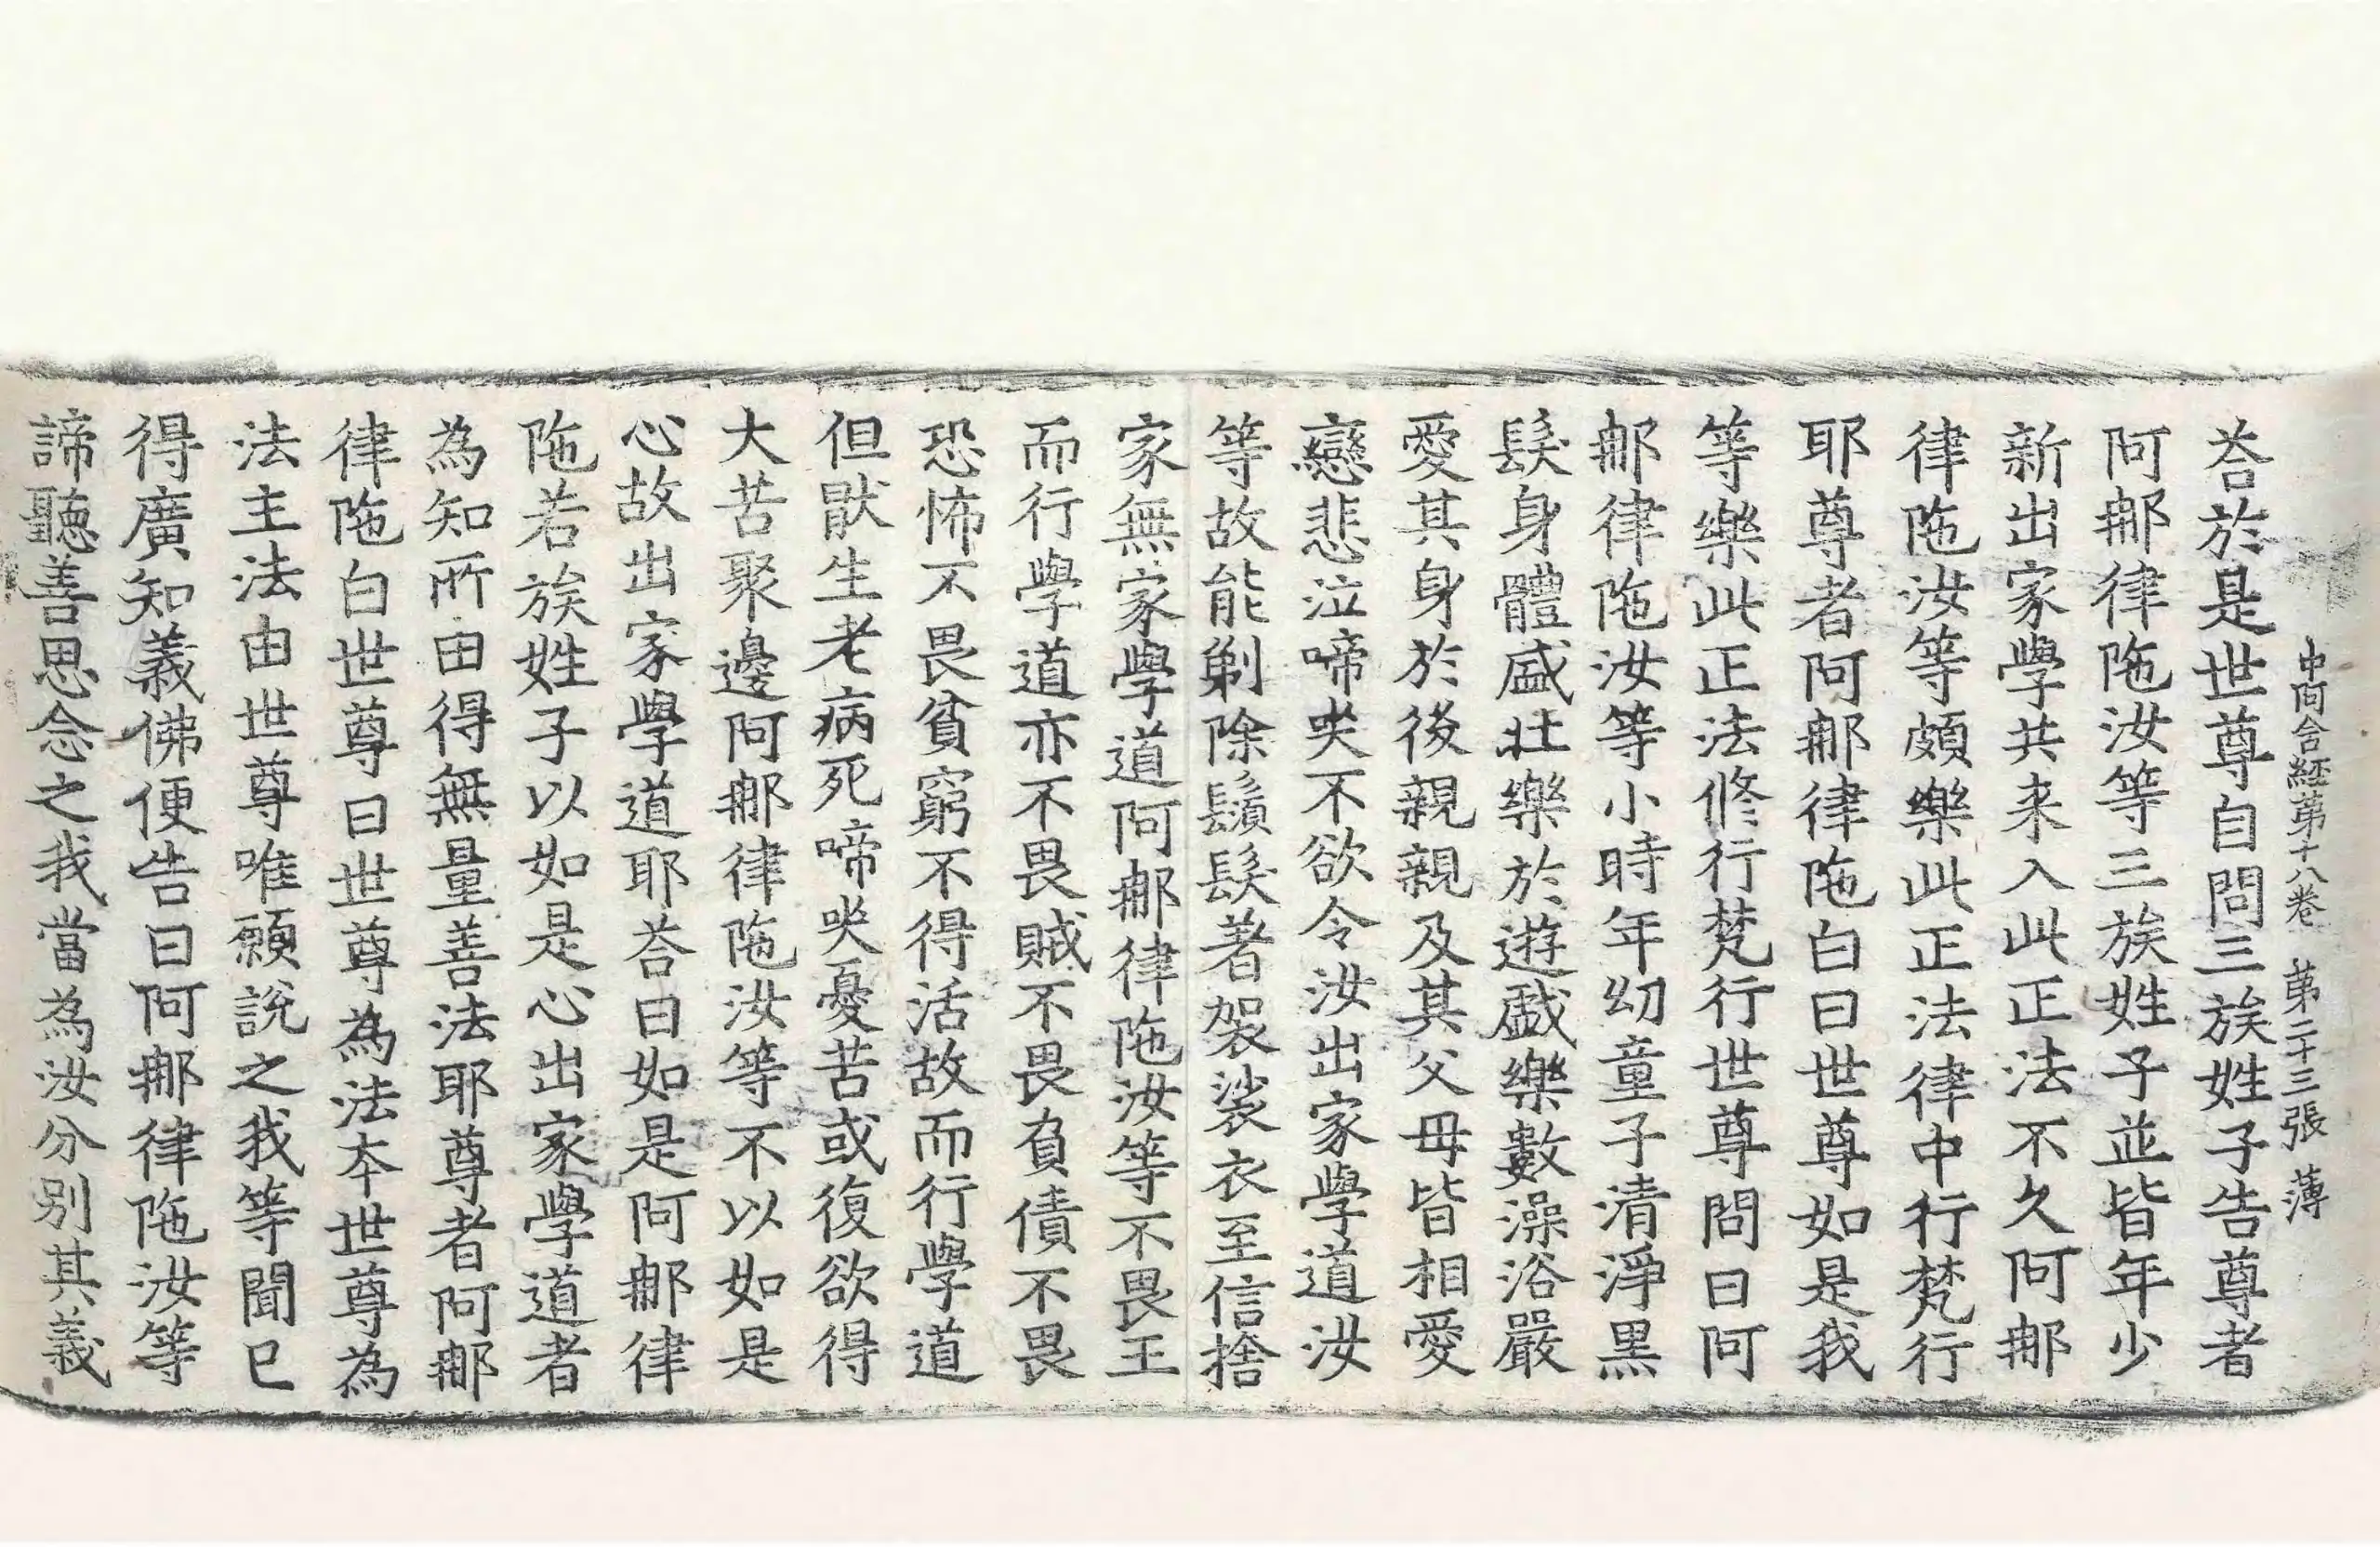 中阿含經苐十八卷 苐二十三張 薄
荅於是世尊自問三族姓子告尊者
阿那律陁汝等三族姓子並皆年少
新出家學共来入此正法不久阿那
律陁汝等頗樂此正法律中行梵行
耶尊者阿那律陁白曰世尊如是我
等樂此正法修行梵行世尊問曰阿
那律陁汝等小時年幼童子清淨黒
髮身體盛壯樂於遊戯樂數澡浴嚴
愛其身於後親親及其父母皆相愛
戀悲泣啼哭不欲令汝出家學道汝
等故能剃除鬚髮著袈裟衣至信捨
家無家學道阿那律陁汝等不畏王
而行學道亦不畏賊不畏負債不畏
恐怖不畏貧窮不得活故而行學道
但猒生老病死啼哭憂苦或復欲得
大苦聚邊阿那律陁汝等不以如是
心故出家學道耶荅曰如是阿那律
陁若族姓子以如是心出家學道者
為知所由得無量善法耶尊者阿那
律陁白世尊曰世尊為法本世尊為
法主法由世尊唯願說之我等聞已
得廣知義佛便告曰阿那律陁汝等
諦聽善思念之我當為汝分别其義